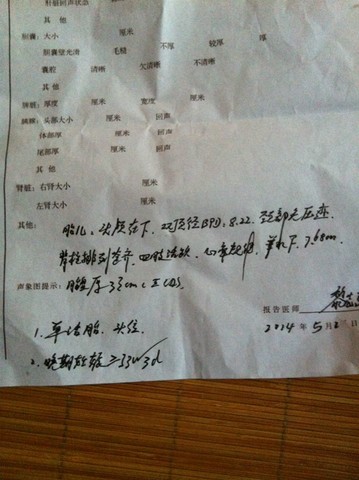 肝脏回声状态
其 他
胆囊：大小 厘米
胆囊壁光滑 毛糙 不厚 较厚 厚
囊腔 清晰 欠清晰 不清晰
其 他
脾脏：厚度 厘米 宽度 厘米
胰腺：头部大小 厘米 回声
体部厚 厘米 回声
尾部厚 厘米 回声
其 他
肾脏：右肾大小 厘米
左肾大小 厘米
其他： 胎儿，头位在下，双顶径BPD，8.22，颈部无压迹，
脊柱排列整齐，四肢活动，心率规整， 羊水 7.68cm
声象图提示： 胎盘厚 33cm
报告医师
1. 单活胎，头位
2024年5月2 日
2. 晚期妊娠 ≥33w3d